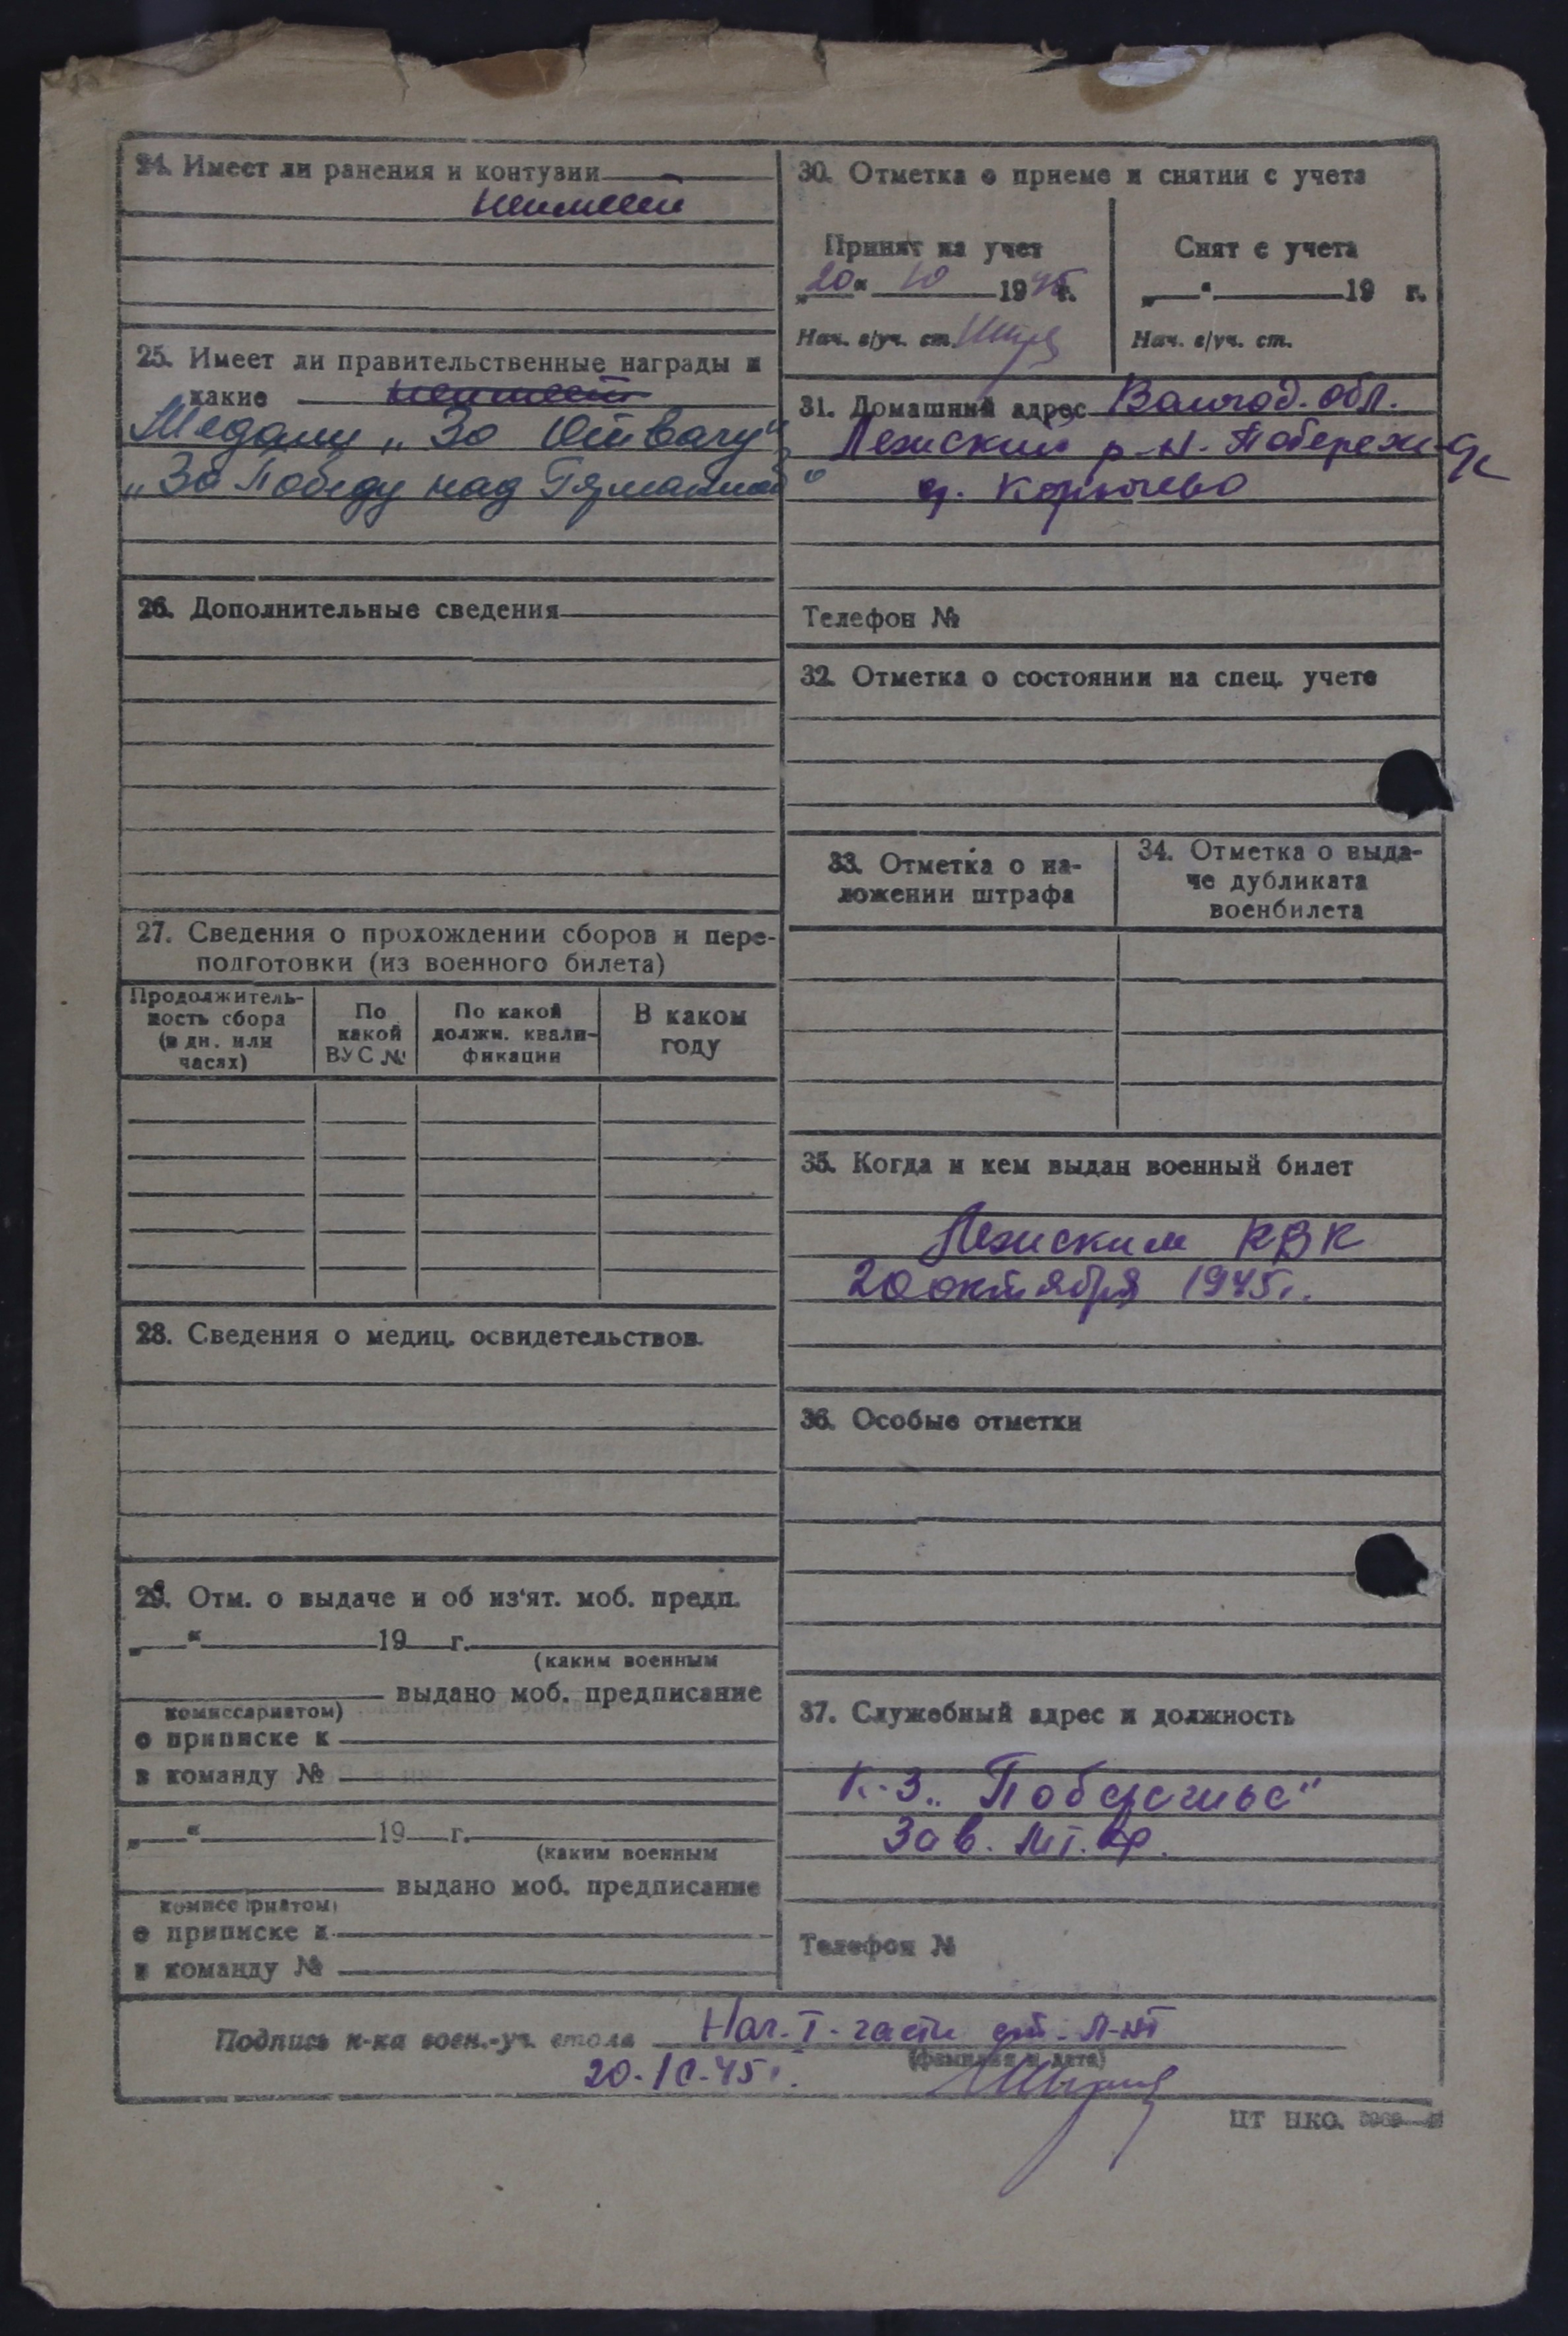 24. Имеет ли ранения и контузии
неимеет
25. Имеет ли правительственные награды и
какие неимеет
Медали „За Отвагу“
„За Победу над Германией“
26. Дополнительные сведения
27. Сведения о прохождении сборов и пере-
подготовки (из военного билета)
Продолжитель-
ность сбора
(в дн. или
часях)
По
какой
ВУС №
По какой
должн. квали-
фикации
В каком
году
28. Сведения о медиц. освидетельствов.
29. Отм. о выдаче и об из‘ят. моб. предп.
„ “ 19 г.
(каким военным
выдано моб. предписание
комиссариатом)
о приписке к
в команду №
„ “ 19 г.
(каким военным
выдано моб. предписание
комиссариатом)
о приписке к
в команду №
30. Отметка о приеме и снятии с учета
Принят на учет
„20“ 10 1945г.
Нач. в/уч. ст.
Снят с учета
„ “ 19 г.
Нач. в/уч. ст.
31. Домашний адрес Вологод. обл.
Лежский р-н. Побережн.
д.
Телефон №
32. Отметка о состоянии на спец. учете
33. Отметка о на-
ложении штрафа
34. Отметка о выда-
че дубликата
военбилета
35. Когда и кем выдан военный билет
Лежским РВК
20 октября 1945г.
36. Особые отметки
37. Служебный адрес и должность
К-з „Побережье“
Зав.
Телефон №
Подпись н-ка воен.-уч. стола Нач. I. части ст. л-нт
(фамилия и дата)
20.10.45г.
ЦТ НКО.